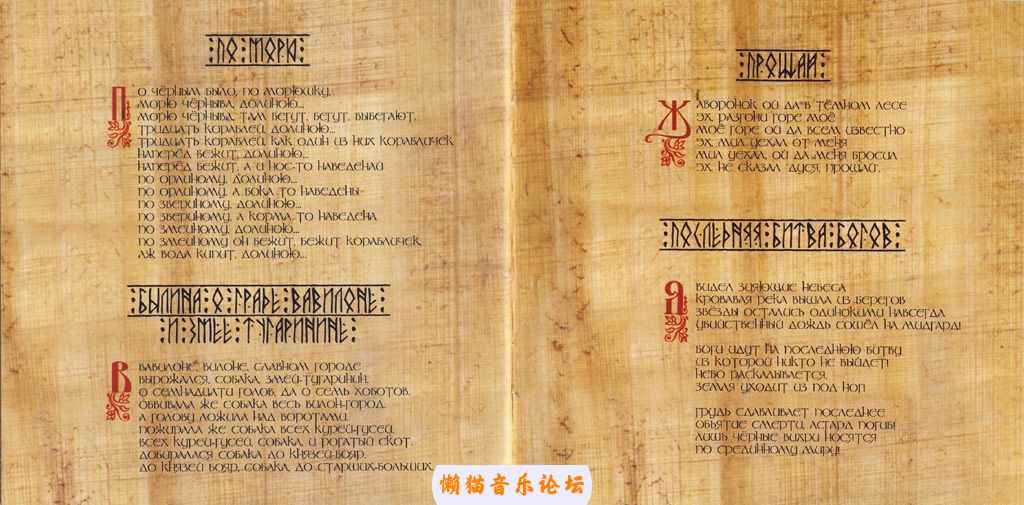 ПО МОРЮ
ПО ЧЁРНЫМ БЫЛО, ПО МОРЮШКУ,
МОРЮ ЧЁРНЫВА, ДОЛИНОЮ...
МОРЮ ЧЁРНЫВА, ТАМ БЕГУТ, БЕГУТ, ВЫБЕГАЮТ,
ТРИДЦАТЬ КОРАБЛЕЙ, ДОЛИНОЮ...
ТРИДЦАТЬ КОРАБЛЕЙ, КАК ОДИН ИЗ НИХ КОРАБЛИЧЕК
НАПЕРЁД БЕЖИТ, ДОЛИНОЮ...
НАПЕРЁД БЕЖИТ, А И НОС-ТО НАВЕДЕНАЙ
ПО ОРЛИНОМУ, ДОЛИНОЮ...
ПО ОРЛИНОМУ, А БОКА ТО НАВЕДЕНЫ-
ПО ЗВЕРИНОМУ, ДОЛИНОЮ...
ПО ЗВЕРИНОМУ, А КОРМА, ТО НАВЕДЕНА
ПО ЗМЕИНОМУ, ДОЛИНОЮ...
ПО ЗМЕИНОМУ ОН БЕЖИТ, БЕЖИТ КОРАБЛИЧЕК,
АЖ ВОДА КИПИТ, ДОЛИНОЮ...
БЫЛИНА О ГРАДЕ ВАВИЛОНЕ
И ЗМЕЕ ТУГАРИНИНЕ
В ВАВИЛОНЕ, ВИЛОНЕ, СЛАВНОМ ГОРОДЕ
ВЫРОЖАЛСЯ, СОБАКА, ЗМЕЙ-ТУГАРИНИН,
О СЕМНАДЦАТИ ГОЛОВ, ДА О СЕМЬ ХОБОТОВ,
ОБВИВАЛА ЖЕ СОБАКА ВЕСЬ ВИЛОН-ГОРОД,
А ГОЛОВУ ЛОЖИЛА НАД ВОРОТАМИ,
ПОЖИРАЛА ЖЕ СОБАКА ВСЕХ КУРЕЙ-ГУСЕЙ,
ВСЕХ КУРЕЙ-ГУСЕЙ, СОБАКА, И РОГАТЫЙ СКОТ,
ДОБИРАЛСЯ СОБАКА ДО КНЯЗЕЙ-БОЯР,
ДО КНЯЗЕЙ БОЯР, СОБАКА, ДО СТАРШИХ-БОЛЬШИХ,
ПРОЩАЙ
ЖАВОРОНОК ОЙ ДА В ТЁМНОМ ЛЕСЕ
ЭХ, РАЗГОНИ ГОРЕ МОЁ
МОЁ ГОРЕ ОЙ ДА ВСЕМ ИЗВЕСТНО
ЭХ, МИЛ УЕХАЛ ОТ МЕНЯ
МИЛ УЕХАЛ, ОЙ ДА МЕНЯ БРОСИЛ
ЭХ, НЕ СКАЗАЛ "ДУСЯ, ПРОЩАЙ".
ПОСЛЕДНЯЯ БИТВА БОГОВ
Я ВИДЕЛ ЗИЯЮЩИЕ НЕБЕСА
КРОВАВАЯ РЕКА ВЫШЛА ИЗ БЕРЕГОВ
ЗВЁЗДЫ ОСТАЛИСЬ ОДИНОКИМИ НАВСЕГДА
УБИЙСТВЕННЫЙ ДОЖДЬ СОШЁЛ НА МИДГАРД!
БОГИ ИДУТ НА ПОСЛЕДНЮЮ БИТВУ
ИЗ КОТОРОЙ НИКТО НЕ ВЫЙДЕТ!
НЕБО РАСКАЛЫВАЕТСЯ,
ЗЕМЛЯ УХОДИТ ИЗ ПОД НОГ!
ГРУДЬ СДАВЛИВАЕТ ПОСЛЕДНЕЕ
ОБЪЯТИЕ СМЕРТИ, АСГАРД ПОГИБ!
ЛИШЬ ЧЁРНЫЕ ВИХРИ НОСЯТСЯ
ПО СРЕДИННОМУ МИРУ!
懒猫音乐论坛